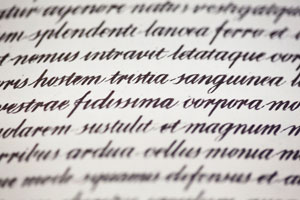 atur agenore natus vestigatque
um splendenti lancea ferro et
t nemus intravit letataque corp
ris hostem tristia sanguinea l
vestrae fidissima corpora mo
olarem sustulit et magnum m
rribus ardua celsus moenia m
ue modo squamis defensus et a